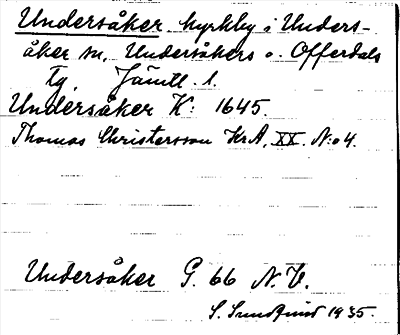 Undersåker kyrkby i Unders-
åker sn, Undersåkers o. Offerdals
tg. Jämtl. l.
Undersåker K: 1645.
Thomas Christersson KrA. XX. N:o 4.
Undersåker G. 66 N. V.
S. Sundquist 1935.